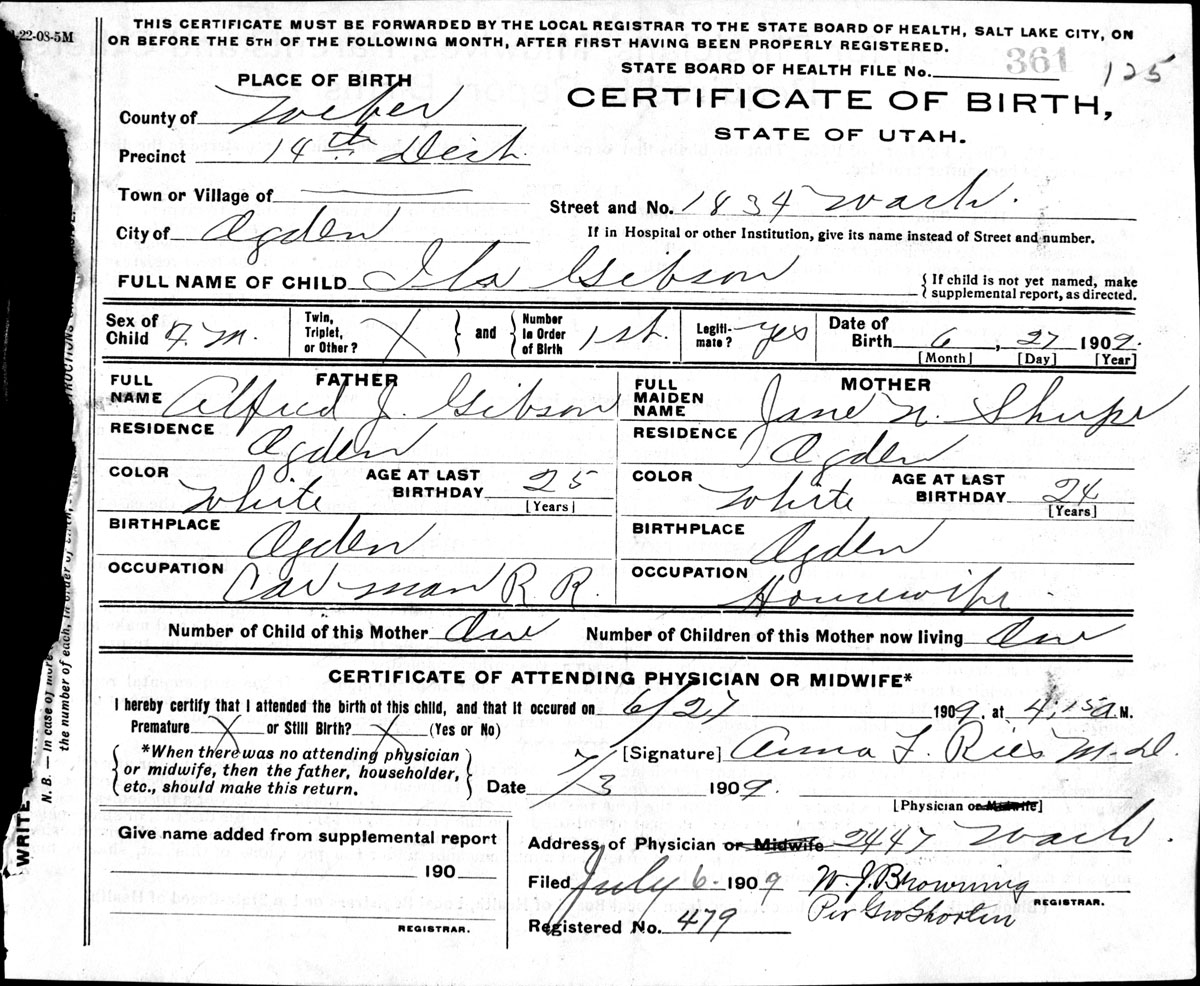 -22-08-5M
THIS CERTIFICATE MUST BE FORWARDED BY THE LOCAL REGISTRAR TO THE STATE BOARD OF HEALTH, SALT LAKE CITY, ON
OR BEFORE THE 5TH OF THE FOLLOWING MONTH, AFTER FIRST HAVING BEEN PROPERLY REGISTERED.
STATE BOARD OF HEALTH FILE No. 361 125
PLACE OF BIRTH
CERTIFICATE OF BIRTH,
STATE OF UTAH.
County of Weber
Precinct 14th Dist.
Town or Village of
Street and No. 1834 Wash.
City of Ogden
If in Hospital or other Institution, give its name instead of Street and number.
FULL NAME OF CHILD Ila Gibson
{If child is not yet named, make
supplemental report, as directed.
Sex of Child F.M. Twin, Triplet, or Other? X } and { Number In Order of Birth 1st. Legiti-mate? yes Date of Birth 6, 27 1909.
[Month] [Day] [Year]
FATHER MOTHER
FULL NAME Alfred J. Gibson FULL MAIDEN NAME Jane N. Shupe
RESIDENCE Ogden RESIDENCE Ogden
COLOR White AGE AT LAST BIRTHDAY 25 [Years] COLOR White AGE AT LAST BIRTHDAY 24 [Years]
BIRTHPLACE Ogden BIRTHPLACE Ogden
OCCUPATION Car man R R. OCCUPATION Housewife
Number of Child of this Mother One Number of Children of this Mother now living One
CERTIFICATE OF ATTENDING PHYSICIAN OR MIDWIFE*
I hereby certify that I attended the birth of this child, and that it occured on 6/27 1909, at 4.15 a.M.
Premature X or Still Birth? X (Yes or No)
{*When there was no attending physician
or midwife, then the father, householder,
etc., should make this return.}
[Signature] Anna F. Ries M.D.
Date 7/3 1909.
[Physician or Midwife]
Give name added from supplemental report
190
REGISTRAR.
Address of Physician or Midwife 2447 Wash.
Filed July 6. 1909 W. J. Browning
Per Geo Shorten REGISTRAR.
Registered No. 479
WRITE
N. B. — In case of more
the number of each, in order of birth,